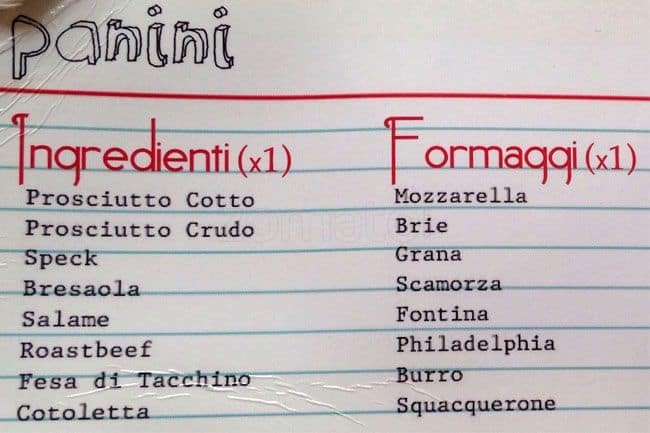 panini
Ingredienti (x1)
Prosciutto Cotto
Prosciutto Crudo
Speck
Bresaola
Salame
Roastbeef
Fesa di Tacchino
Cotoletta
Formaggi (x1)
Mozzarella
Brie
Grana
Scamorza
Fontina
Philadelphia
Burro
Squacquerone
zomato